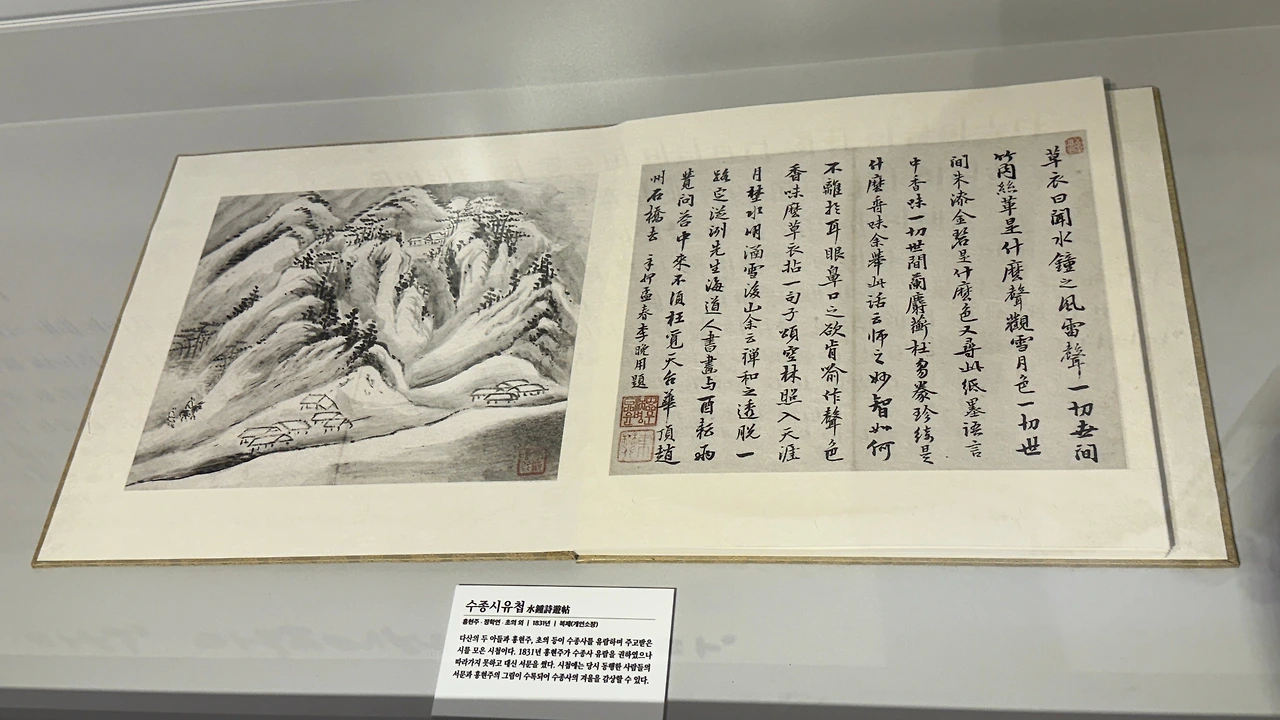 草衣曰聞水鐘之風雷聲一切世間
竹肉絲革是什麽聲觀雪月色一切世
間朱漆金碧是什麽色又尋此紙墨語言
中香味一切世間蘭麝蘅杜芻豢珍綺是
什麽香味余擧此話云師之妙智如何
不離於耳眼鼻口之欲肯喩作聲色
香味麽草衣拈一句子頌空林照入天涯
月埜水明涵雪後山余云禪和之透脫一
路定從洌先生海道人書畫与酉耘兩
問答中來不須枉覓天台華頂趙
州石橋去 辛卯孟春李晩用題
수종시유첩 水鐘詩遊帖
홍현주·정학연·초의 외 | 1831년 | 복제(개인소장)
다산의 두 아들과 홍현주, 초의 등이 수종사를 유람하며 주고받은
시를 모은 시첩이다. 1831년 홍현주가 수종사 유람을 권하였으나
따라가지 못하고 대신 서문을 썼다. 시첩에는 당시 동행한 사람들의
서문과 홍현주의 그림이 수록되어 수종사의 겨울을 감상할 수 있다.